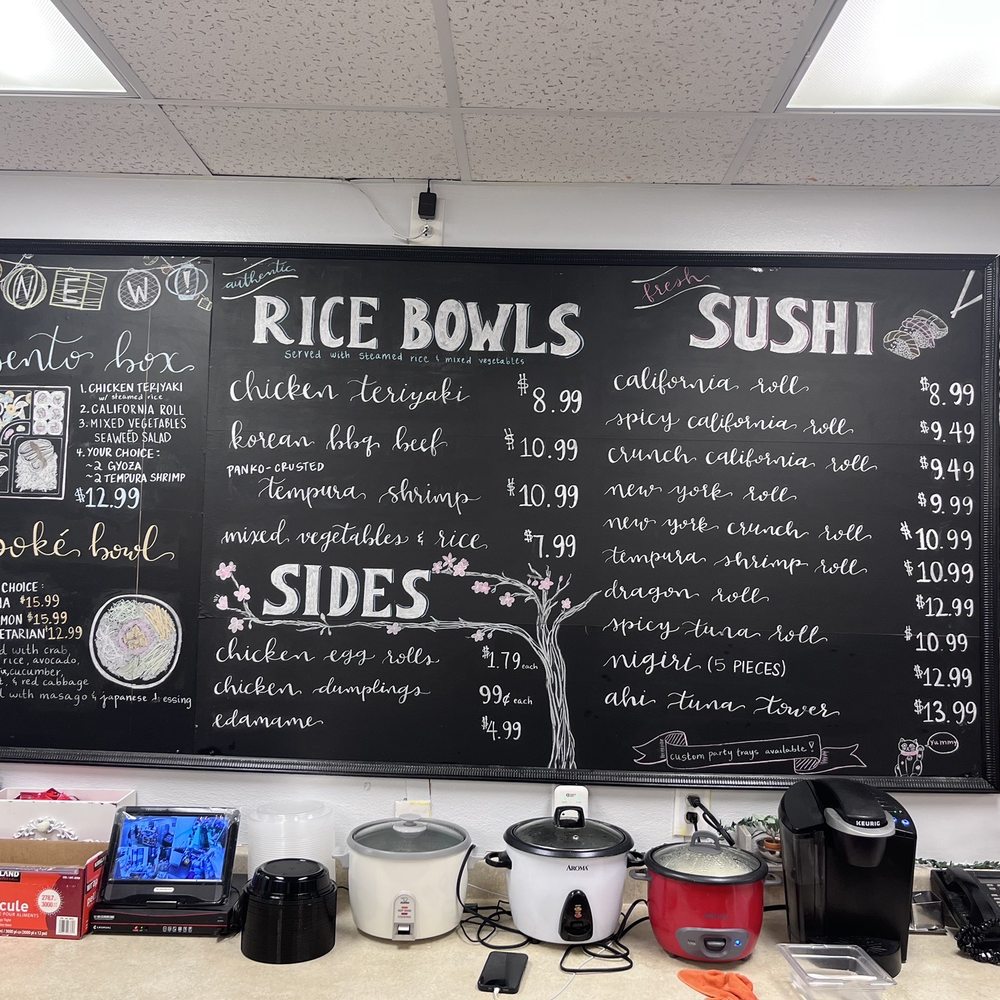 NEW!
box
1. CHICKEN TERIYAKI
w/ steamed rice
2. CALIFORNIA ROLL
3. MIXED VEGETABLES
SEAWEED SALAD
4. YOUR CHOICE:
~2 GYOZA
~2 TEMPURA SHRIMP
$12.99
poké bowl
CHOICE:
$15.99
$15.99
12.99
with crab,
rice, avocado,
cucumber,
& red cabbage
with masago & japanese dressing
authentic
RICE BOWLS
served with steamed rice & mixed vegetables
chicken teriyaki $8.99
korean bbq beef $10.99
PANKO-CRUSTED
tempura shrimp $10.99
mixed vegetables & rice $7.99
SIDES
chicken egg rolls $1.79 each
chicken dumplings 99¢ each
edamame $4.99
fresh
SUSHI
california roll $8.99
spicy california roll $9.49
crunch california roll $9.49
new york roll $9.99
new york crunch roll $10.99
tempura shrimp roll $10.99
dragon roll $12.99
spicy tuna roll $10.99
nigiri (5 PIECES) $12.99
ahi tuna tower $13.99
custom party trays available!
yummy
AROMA
KEURIG